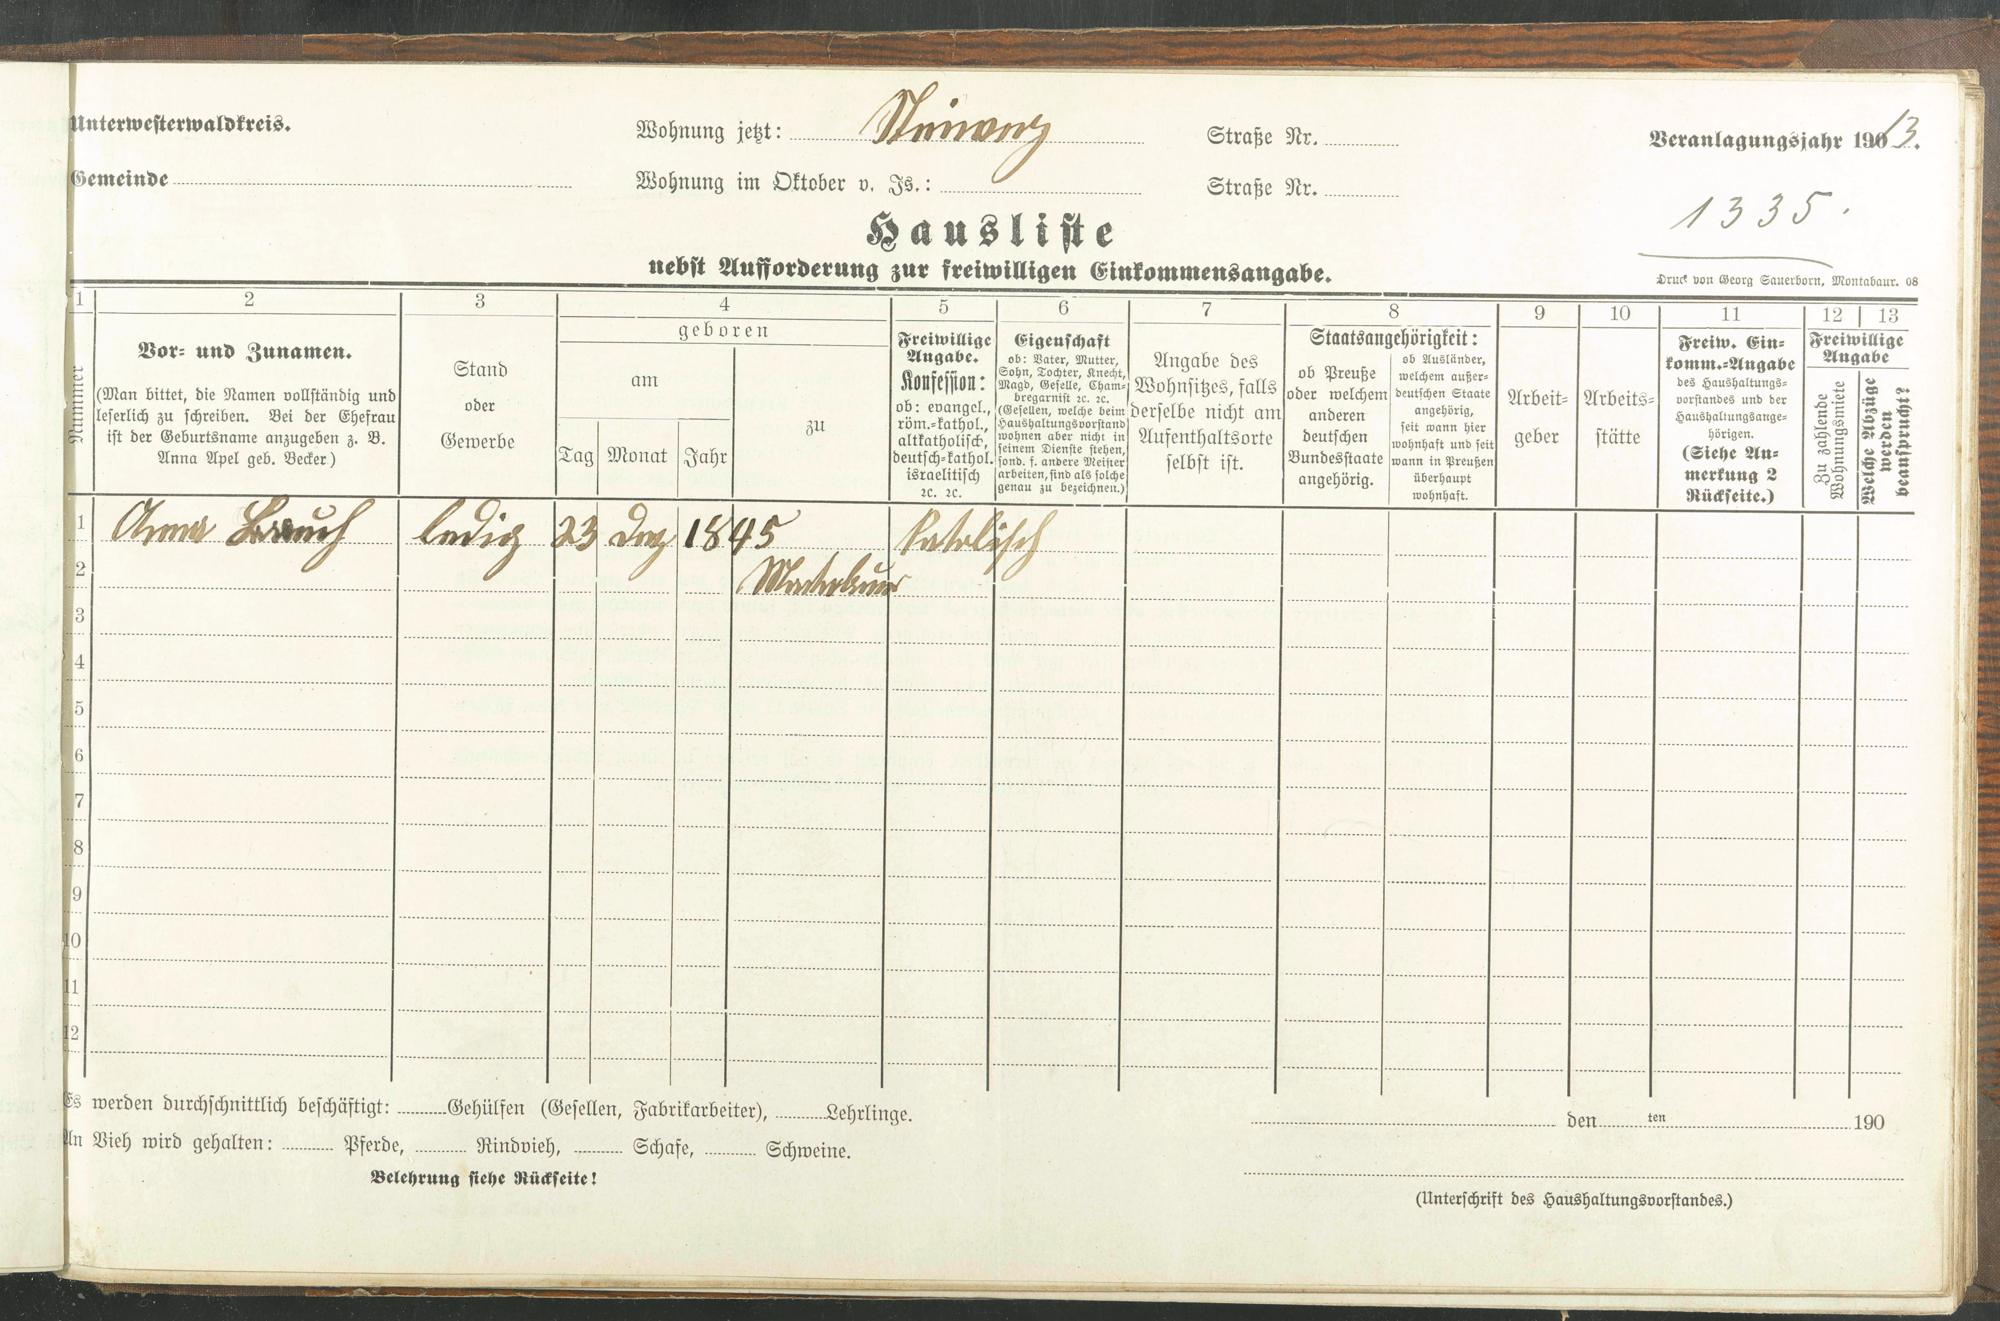 Unterwesterwaldkreis.
Gemeinde
Wohnung jetzt: Steinweg
Wohnung im Oktober v. Js.:
Straße Nr.
Straße Nr.
Veranlagungsjahr 1913.
1335.
Hausliste
nebst Aufforderung zur freiwilligen Einkommensangabe.
Druck von Georg Sauerborn, Montabaur. 08
1 2 3 4 5 6 7 8 9 10 11 12 13
Nummer
Vor- und Zunamen.
(Man bittet, die Namen vollständig und
leserlich zu schreiben. Bei der Ehefrau
ist der Geburtsname anzugeben z. B.
Anna Apel geb. Becker)
Stand
oder
Gewerbe
geboren
am
Tag Monat Jahr
zu
Freiwillige
Angabe.
Konfession:
ob: evangel.,
röm.-kathol.,
altkatholisch,
deutsch-kathol.
israelitisch
2c. 2c.
Eigenschaft
ob: Vater, Mutter,
Sohn, Tochter, Knecht,
Magd, Geselle, Cham-
bregarnist 2c. 2c.
(Gesellen, welche beim
Haushaltungsvorstand
wohnen aber nicht in
seinem Dienste stehen,
sond. f. andere Meister
arbeiten, sind als solche
genau zu bezeichnen.)
Angabe des
Wohnsitzes, falls
derselbe nicht am
Aufenthaltsorte
selbst ist.
Staatsangehörigkeit:
ob Preuße
oder welchem
anderen
deutschen
Bundesstaate
angehörig.
ob Ausländer,
welchem außer-
deutschen Staate
angehörig,
seit wann hier
wohnhaft und seit
wann in Preußen
überhaupt
wohnhaft.
Arbeit-
geber
Arbeits-
stätte
Freiw. Ein-
komm.-Angabe
des Haushaltungs-
vorstandes und der
Haushaltungsange-
hörigen.
(Siehe An-
merkung 2
Rückseite.)
Freiwillige
Angabe
Zu zahlende
Wohnungsmiete
Welche Abzüge
werden
beansprucht?
1 Anna Brauch ledig 23 Dez 1845 katolisch
2 Montabaur
3
4
5
6
7
8
9
10
11
12
Es werden durchschnittlich beschäftigt: Gehülfen (Gesellen, Fabrikarbeiter), Lehrlinge.
An Vieh wird gehalten: Pferde, Rindvieh, Schafe, Schweine.
Belehrung siehe Rückseite!
den ten 190
(Unterschrift des Haushaltungsvorstandes.)